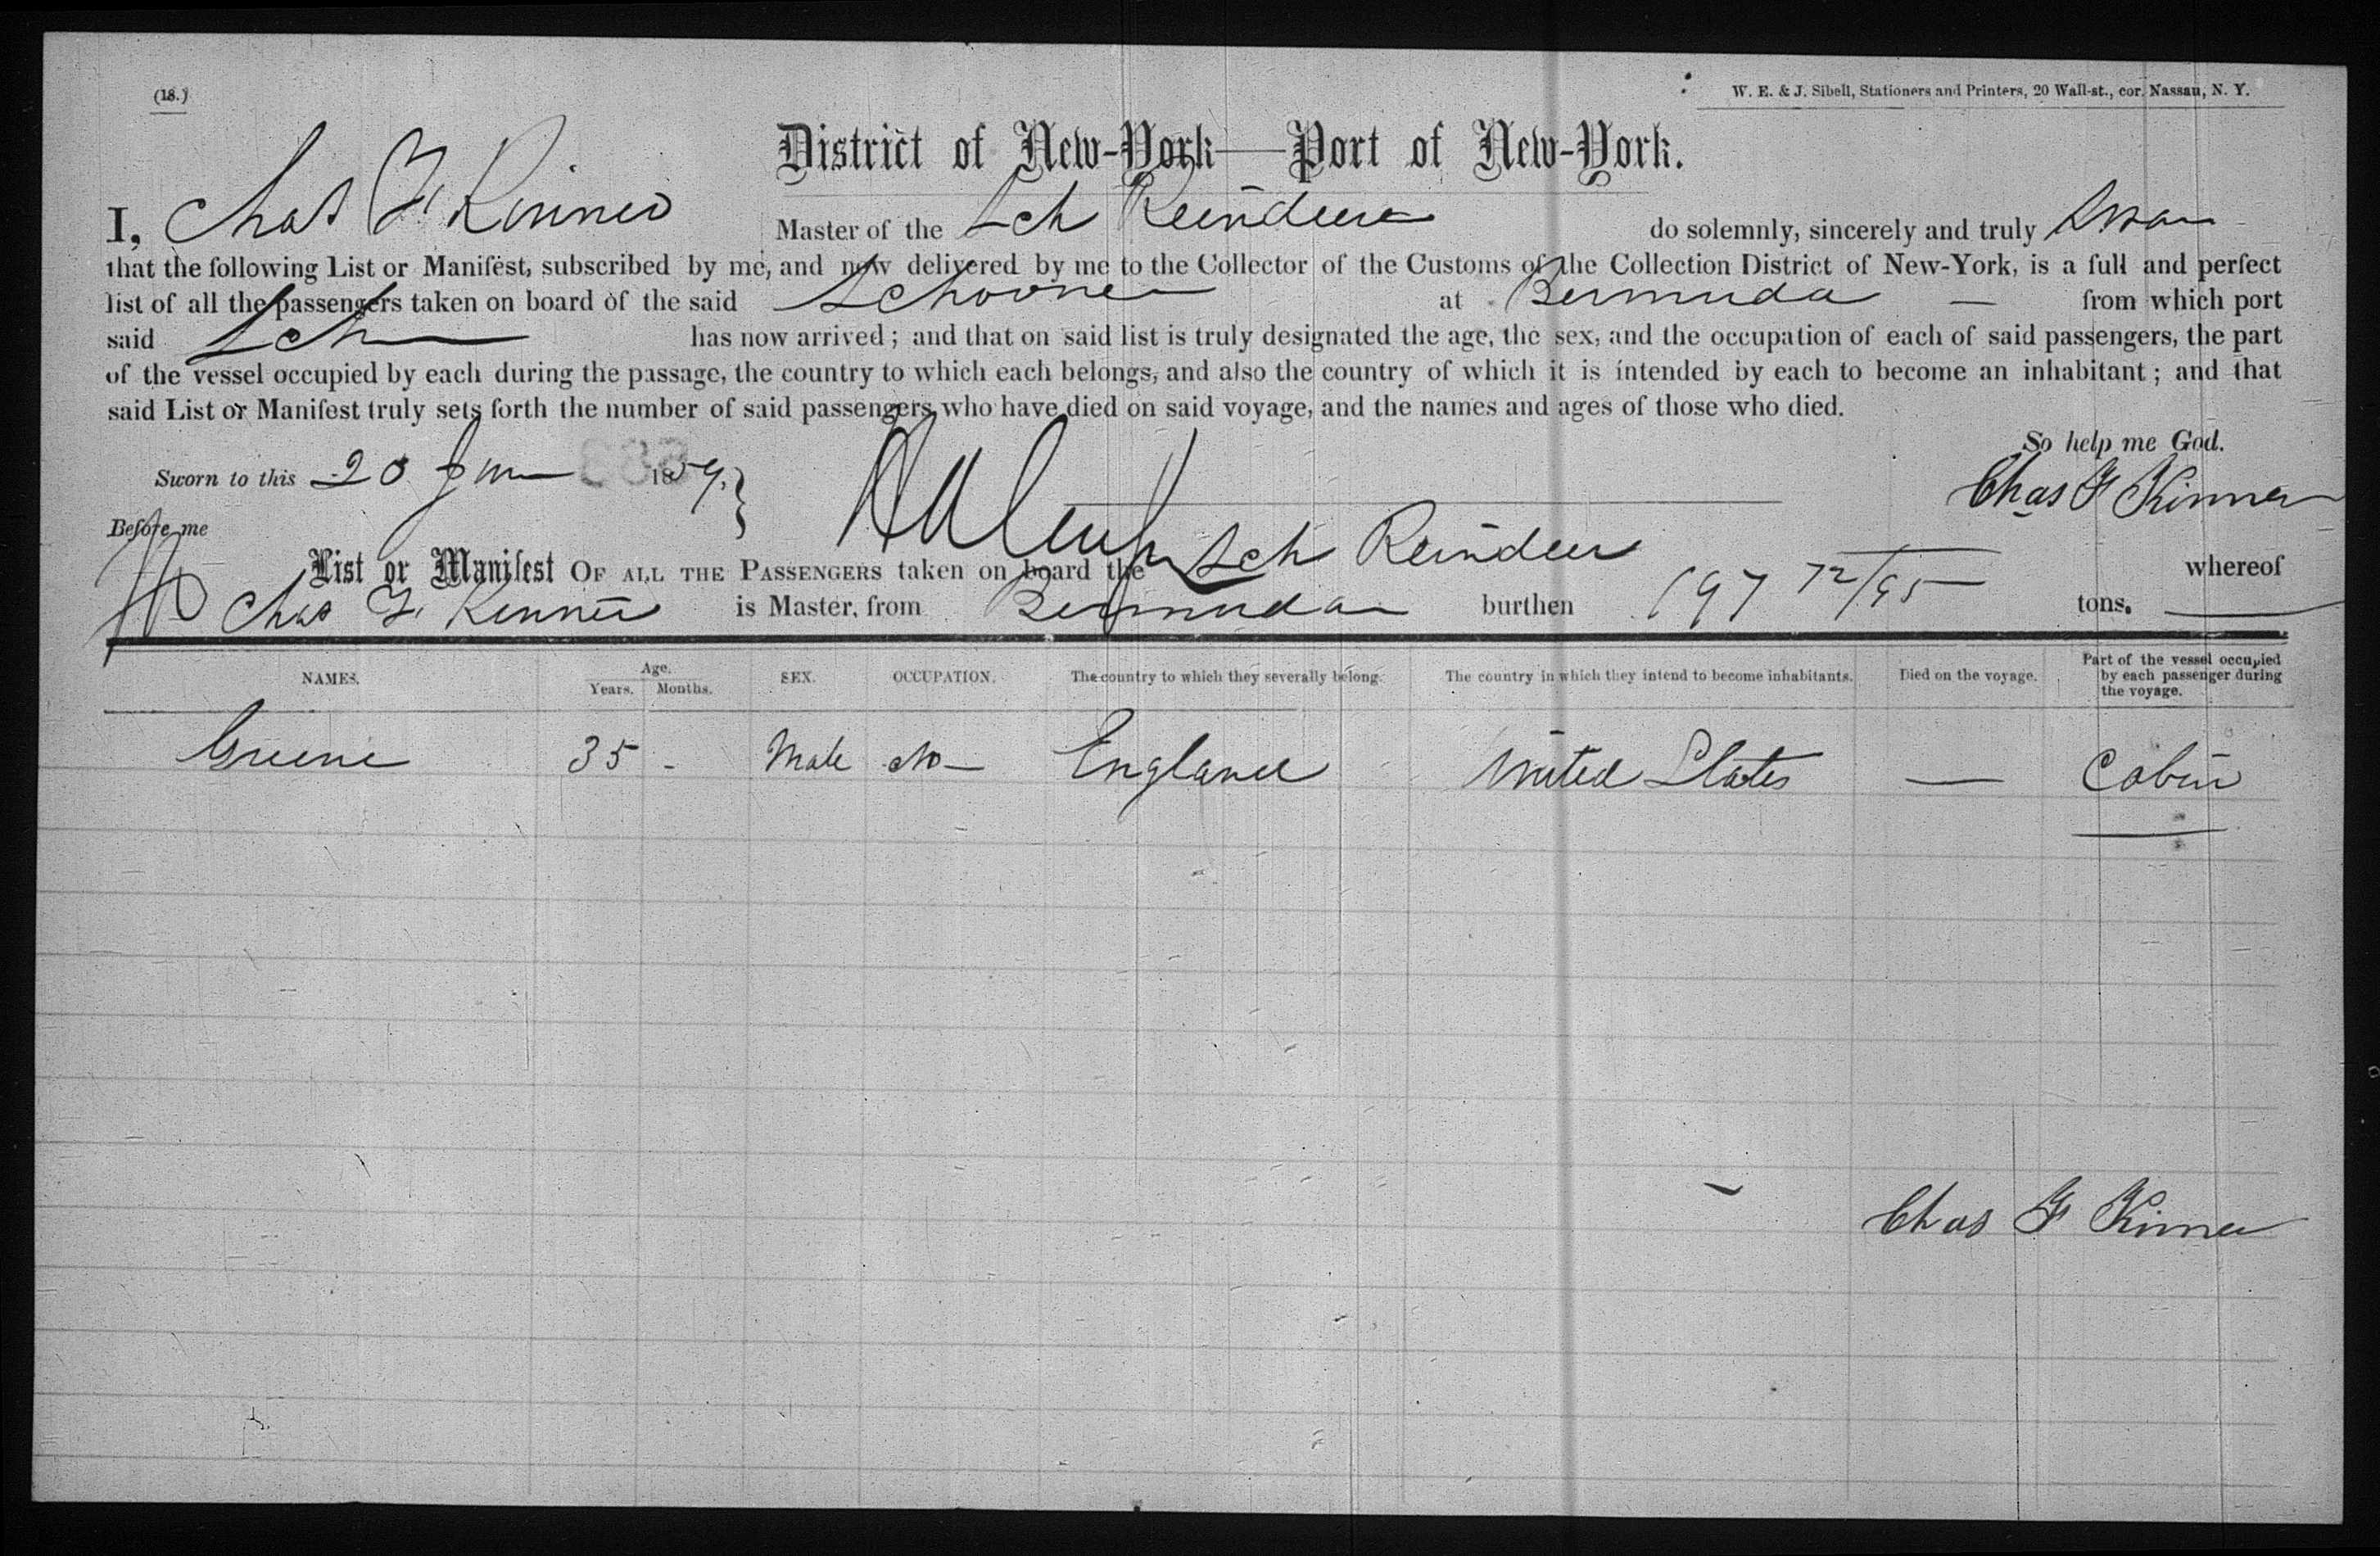 (18.)
W. E. & J. Sibell, Stationers and Printers, 20 Wall-st., cor. Nassau, N. Y.
District of New-York—Port of New-York.
I, Chas F Kinner Master of the Sch Reindeer do solemnly, sincerely and truly swear
that the following List or Manifest, subscribed by me, and now delivered by me to the Collector of the Customs of the Collection District of New-York, is a full and perfect
list of all the passengers taken on board of the said Schooner at Bermuda — from which port
said Sch has now arrived; and that on said list is truly designated the age, the sex, and the occupation of each of said passengers, the part
of the vessel occupied by each during the passage, the country to which each belongs, and also the country of which it is intended by each to become an inhabitant; and that
said List or Manifest truly sets forth the number of said passengers who have died on said voyage, and the names and ages of those who died.
So help me God.
Sworn to this 20 1859. Chas F Kinner
Before me
List or Manifest OF ALL THE PASSENGERS taken on board the Sch Reindeer whereof
Chas F Kinner is Master, from Bermuda burthen 197 72/95 tons.
NAMES. Age. Years. Months. SEX. OCCUPATION. The country to which they severally belong. The country in which they intend to become inhabitants. Died on the voyage. Part of the vessel occupied by each passenger during the voyage.
Greene 35 - Male No — England United States — Cabin
Chas F Kinner